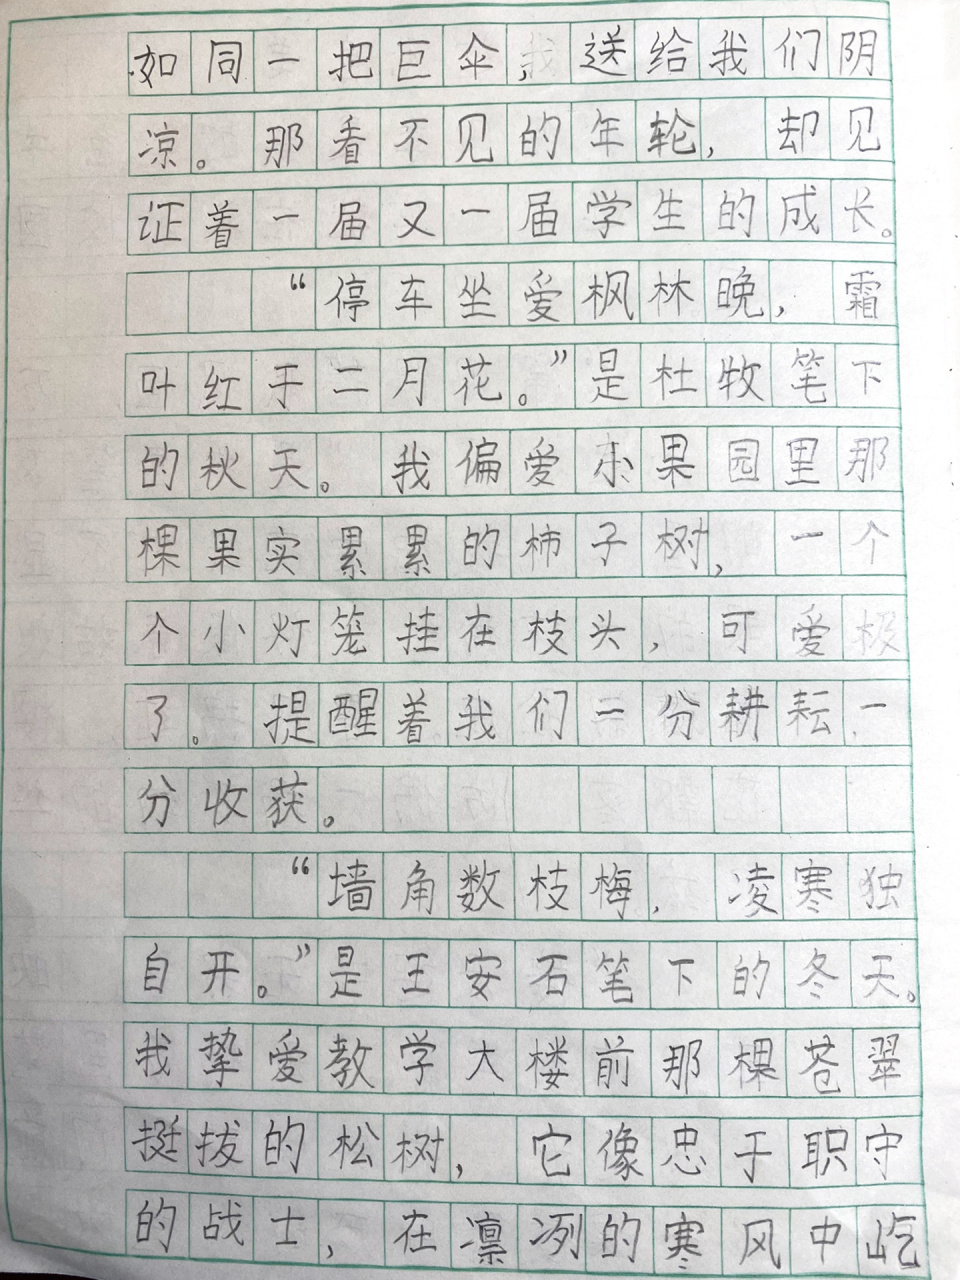 如同一把巨伞，送给我们阴
凉。那看不见的年轮，却见
证着一届又一届学生的成长。
“停车坐爱枫林晚，霜
叶红于二月花。”是杜牧笔下
的秋天。我偏爱果园里那
棵果实累累的柿子树，一个
个小灯笼挂在枝头，可爱极
了。提醒着我们一分耕耘一
分收获。
“墙角数枝梅，凌寒独
自开。”是王安石笔下的冬天。
我挚爱教学大楼前那棵苍翠
挺拔的松树，它像忠于职守
的战士，在凛冽的寒风中屹